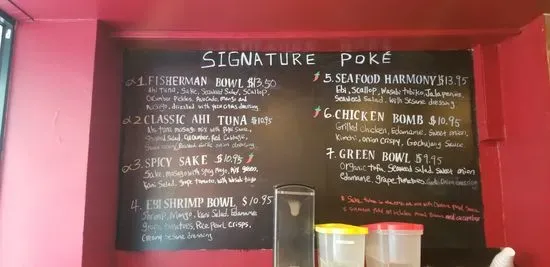 SIGNATURE POKÉ
1. FISHERMAN BOWL $13.50
Ahi tuna, Sake, Seaweed Salad, Scallop,
Cucumber Pickles, Avocado, Mango and
Masago, drizzled with dressing
2. CLASSIC AHI TUNA $10.95
Ahi tuna masago mix with
Seaweed Salad, Cucumber, Red Cabbage,
onion dressing
3. SPICY SAKE $10.95
Sake, masago with Spicy Mayo,
Kani Salad, grape tomato, with Wasabi
4. EBI SHRIMP BOWL $10.95
Shrimp, Mango, Kani Salad, Edamame
grape tomatoes, Rice Pearl Crisps,
Creamy Sesame dressing
5. SEAFOOD HARMONY $13.95
Ebi, Scallop, Wasabi tobiko, Jalapenios,
Seaweed Salad with Sesame dressing
6. CHICKEN BOMB $10.95
Grilled Chicken, Edamame, Sweet onion,
Kimchi, onion crispy, Gochujang Sauce
7. GREEN BOWL $9.95
Organic tofu, Seaweed salad, Sweet onion
Edamame, grape tomatoes, onion dressing
and cucumber